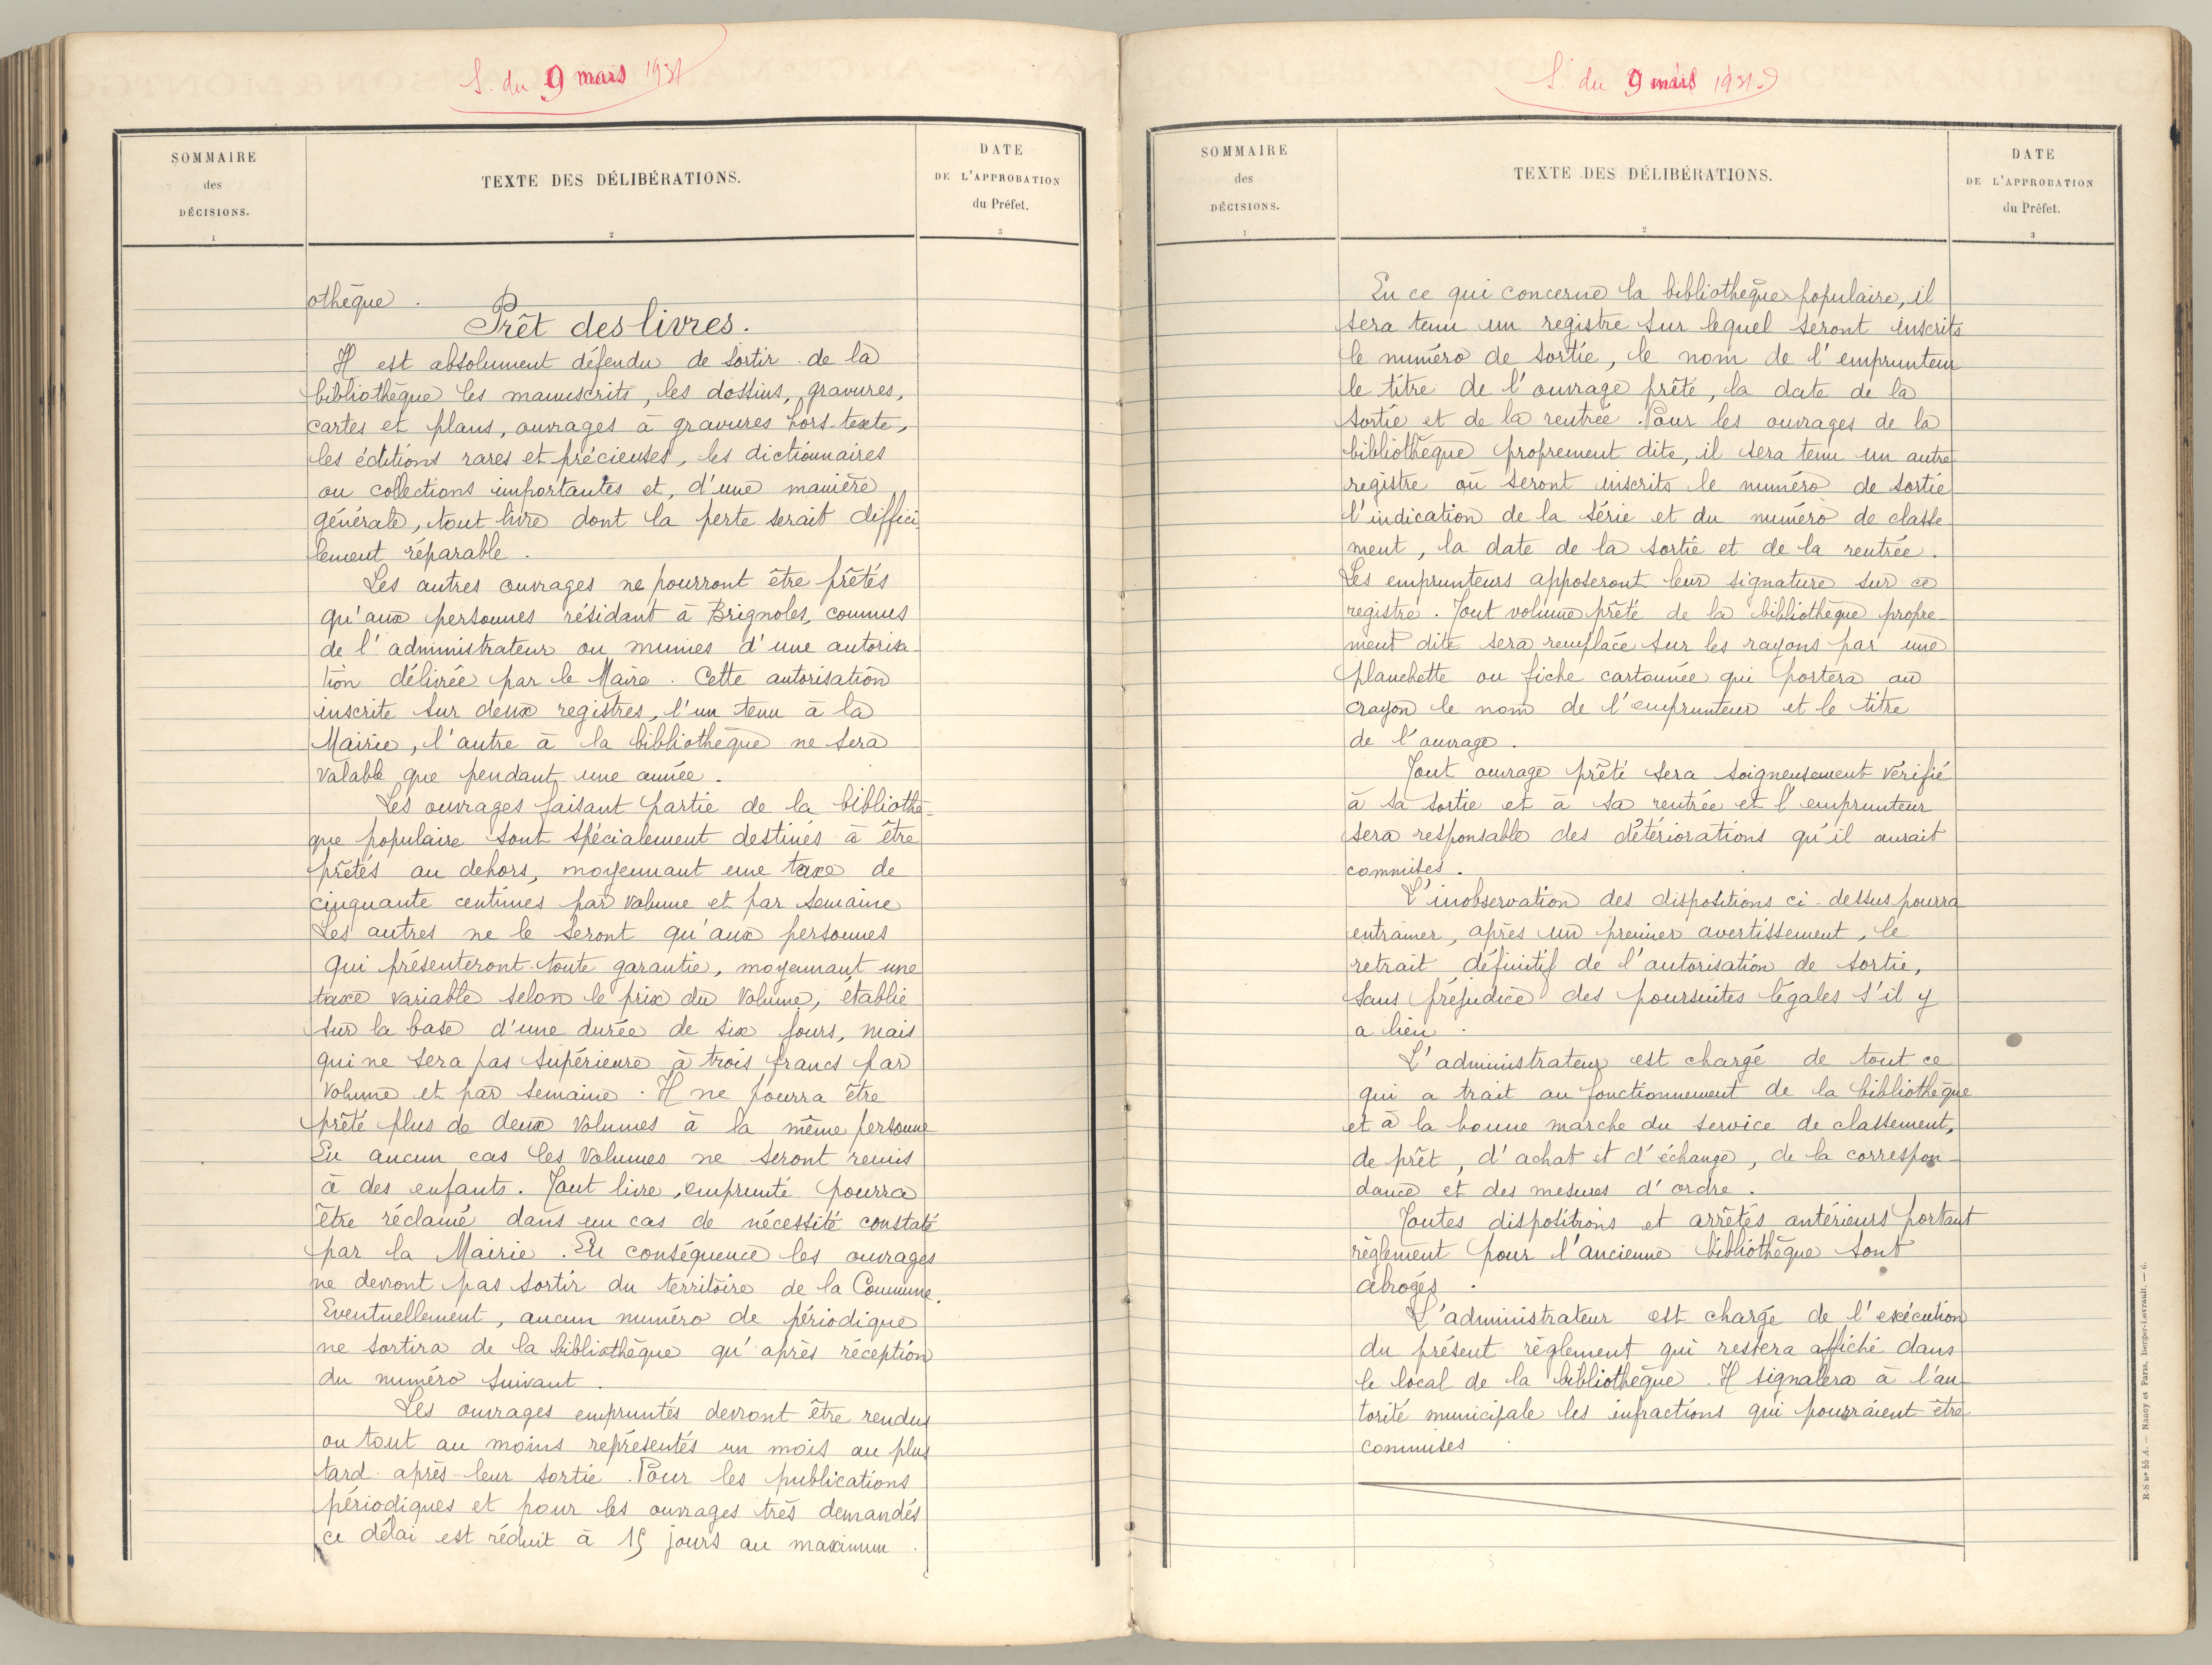 S. du 9 mars 1931
SOMMAIRE
des
DÉCISIONS.
1
TEXTE DES DÉLIBÉRATIONS.
2
DATE
DE L'APPROBATION
du Préfet.
3
othèque.
Prêt des livres.
Il est absolument défendu de sortir de la
bibliothèque les manuscrits, les dossins, gravures,
cartes et plans, ouvrages à gravures hors-texte,
les éditions rares et précieuses, les dictionnaires
ou collections importantes et, d'une manière
générale, tout livre dont la perte serait diffici-
lement réparable.
Les autres ouvrages ne pourront être prêtés
qu'aux personnes résidant à Brignoles, connues
de l'administrateur ou munies d'une autorisa-
tion délivrée par le Maire. Cette autorisation
inscrite sur deux registres, l'un tenu à la
Mairie, l'autre à la bibliothèque ne sera
valable que pendant une année.
Les ouvrages faisant partie de la bibliothè-
que populaire sont spécialement destinés à être
prêtés au dehors, moyennant une taxe de
cinquante centimes par volume et par semaine
Les autres ne le seront qu'aux personnes
qui présenteront toute garantie, moyennant une
taxe variable selon le prix du volume, établie
sur la base d'une durée de six jours, mais
qui ne sera pas supérieure à trois francs par
volume et par semaine. Il ne pourra être
prêté plus de deux volumes à la même personne
En aucun cas les volumes ne seront remis
à des enfants. Tout livre emprunté pourra
être réclamé dans un cas de nécessité constaté
par la Mairie. En conséquence les ouvrages
ne devront pas sortir du territoire de la Commune.
Eventuellement, aucun numéro de périodique
ne sortira de la bibliothèque qu'après réception
du numéro suivant.
Les ouvrages empruntés devront être rendus
ou tout au moins représentés un mois au plus
tard après leur sortie. Pour les publications
périodiques et pour les ouvrages très demandés
ce délai est réduit à 15 jours au maximum.
S. du 9 mars 1931
SOMMAIRE
des
DÉCISIONS.
1
TEXTE DES DÉLIBÉRATIONS.
2
DATE
DE L'APPROBATION
du Préfet.
3
En ce qui concerne la bibliothèque populaire, il
sera tenu un registre sur lequel seront inscrits
le numéro de sortie, le nom de l'emprunteur
le titre de l'ouvrage prêté, la date de la
sortie et de la rentrée. Pour les ouvrages de la
bibliothèque proprement dite, il sera tenu un autre
registre où seront inscrits le numéro de sortie
l'indication de la série et du numéro de classe-
ment, la date de la sortie et de la rentrée.
Les emprunteurs apposeront leur signature sur ce
registre. Tout volume prêté de la bibliothèque propre-
ment dite sera remplacé sur les rayons par une
planchette ou fiche cartonnée qui portera au
crayon le nom de l'emprunteur et le titre
de l'ouvrage.
Tout ouvrage prêté sera soigneusement vérifié
à sa sortie et à sa rentrée et l'emprunteur
sera responsable des détériorations qu'il aurait
commises.
L'inobservation des dispositions ci-dessus pourra
entrainer, après un premier avertissement, le
retrait définitif de l'autorisation de sortie,
sans préjudice des poursuites légales s'il y
a lieu.
L'administrateur est chargé de tout ce
qui a trait au fonctionnement de la bibliothèque
et à la bonne marche du service de classement,
de prêt, d'achat et d'échange, de la correspon-
dance et des mesures d'ordre.
Toutes dispositions et arrêtés antérieurs portant
règlement pour l'ancienne bibliothèque sont
abrogés.
L'administrateur est chargé de l'exécution
du présent règlement qui restera affiché dans
le local de la bibliothèque. Il signalera à l'au-
torité municipale les infractions qui pourraient être
commises
R-S nº 55 A. — Nancy et Paris, Berger-Levrault. — 6.